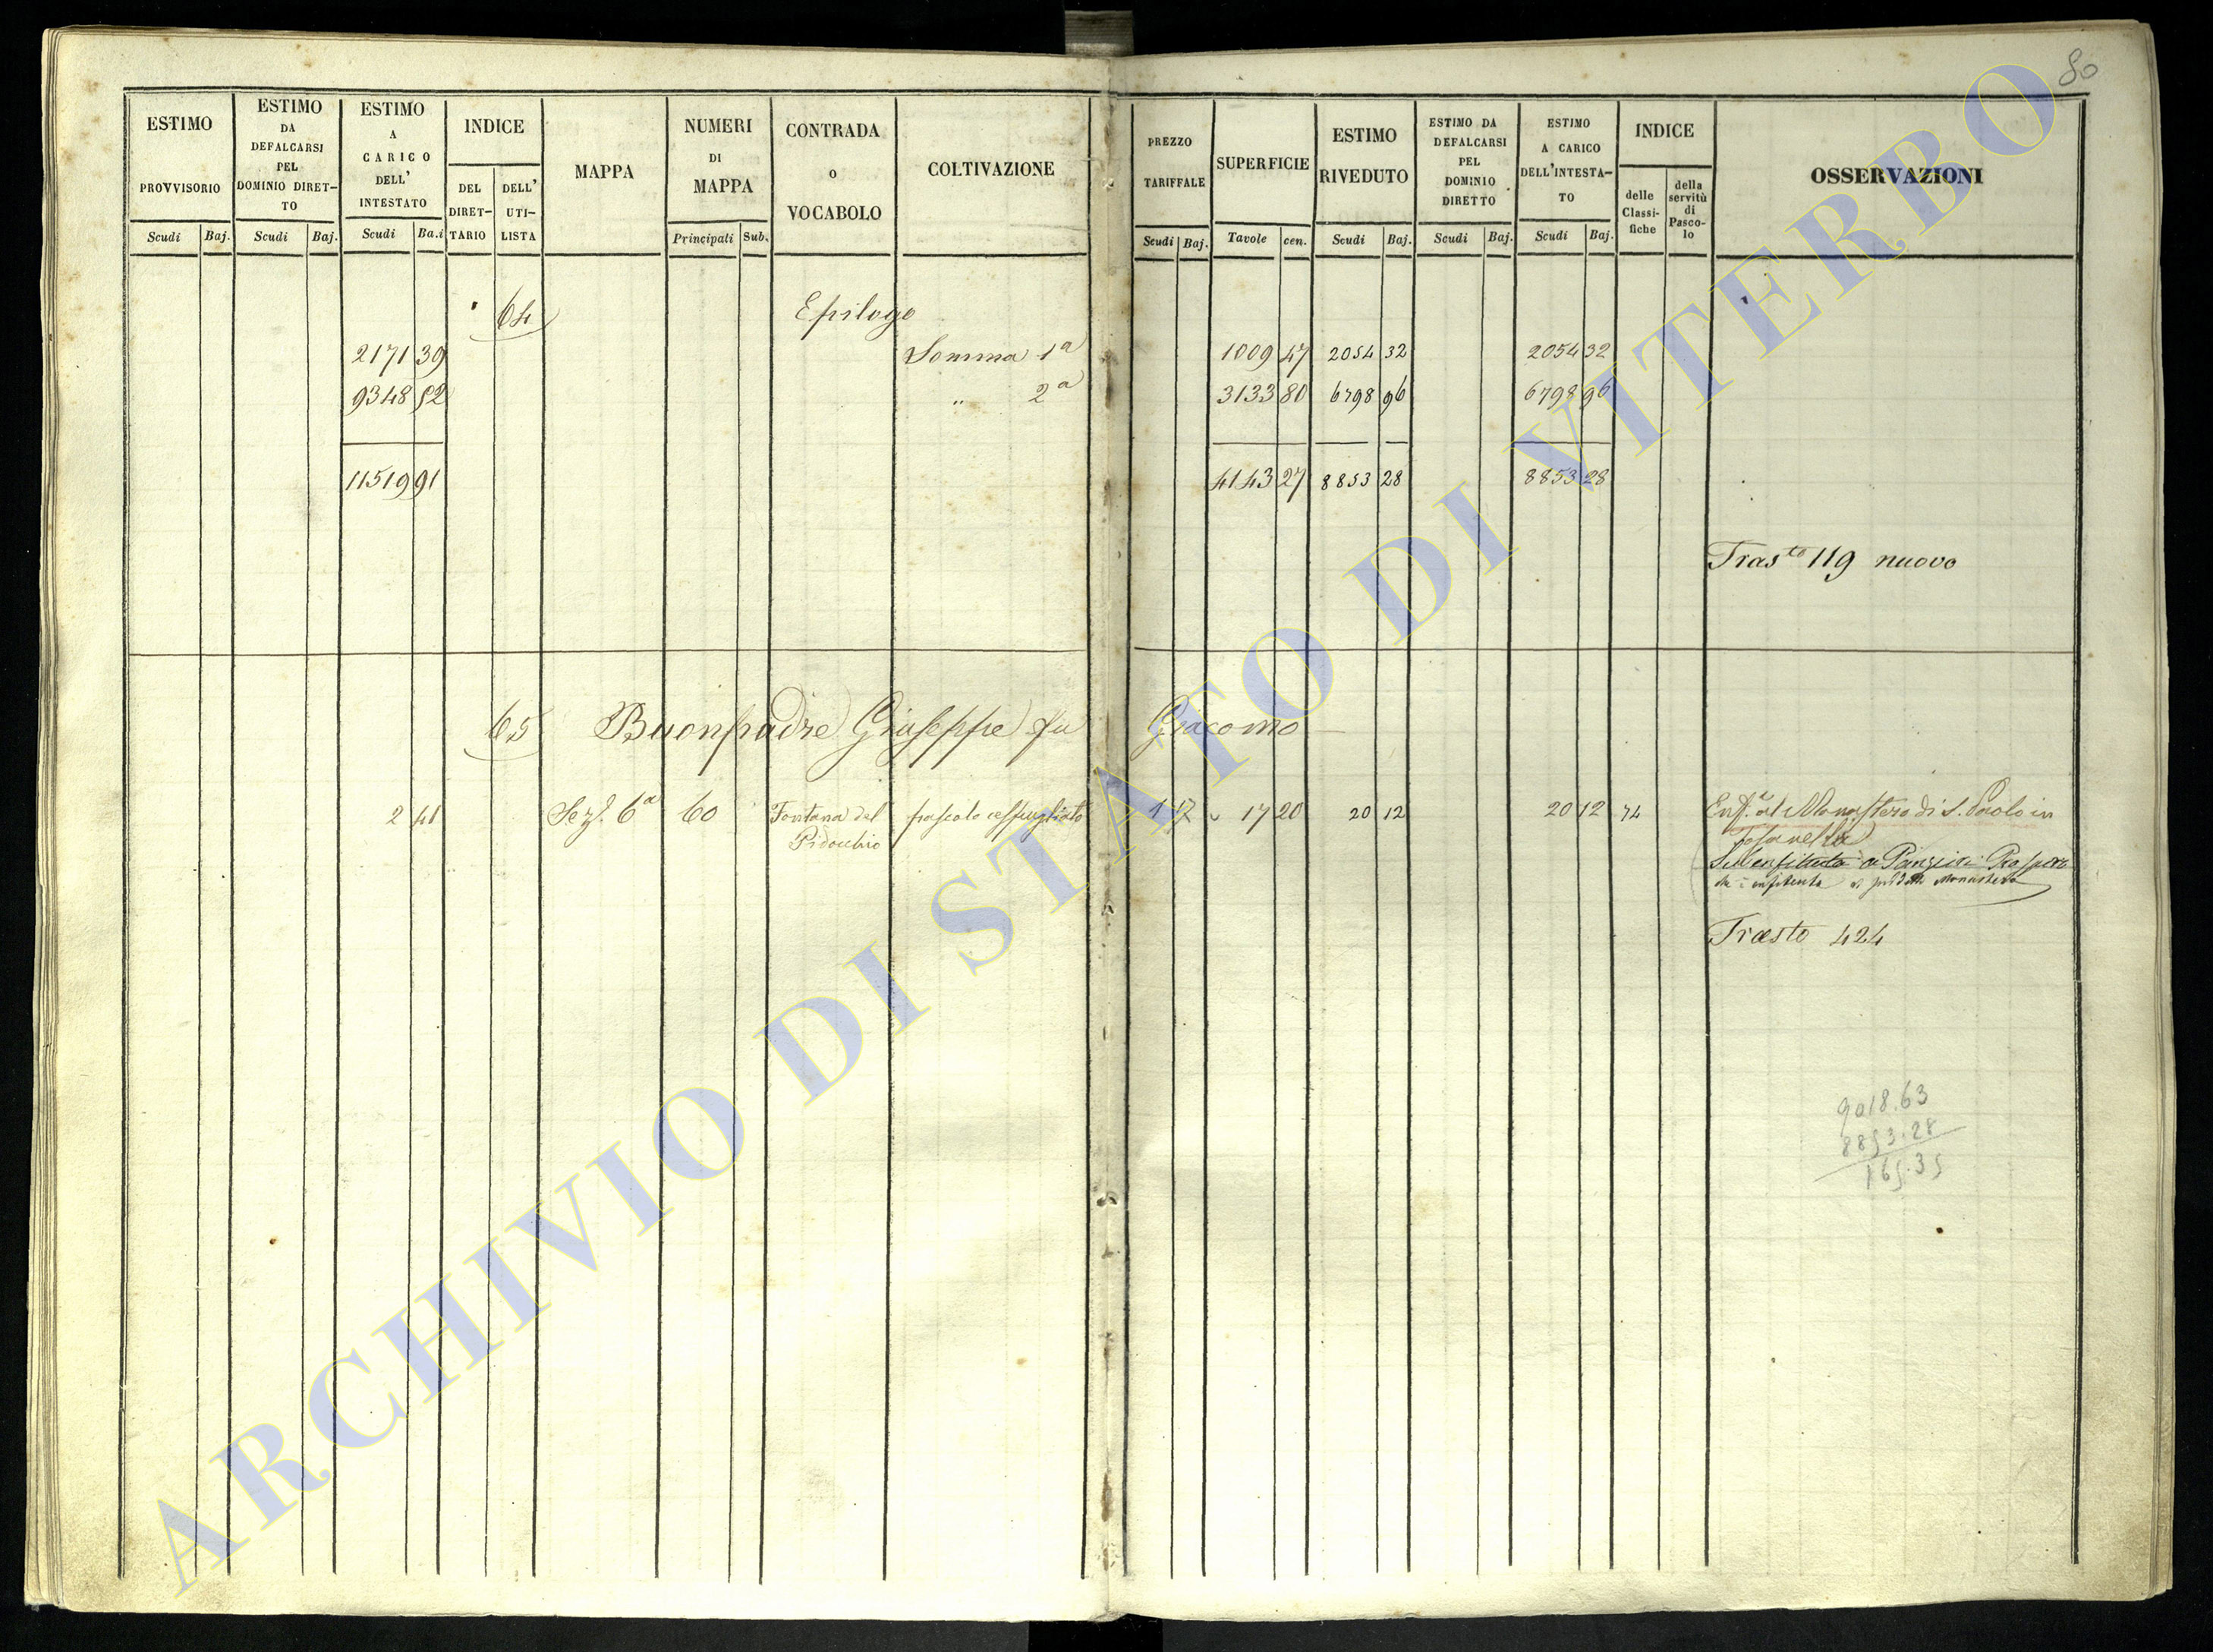 80
ESTIMO PROVVISORIO Scudi Baj.
ESTIMO DA DEFALCARSI PEL DOMINIO DIRET- TO Scudi Baj.
ESTIMO A CARICO DELL' INTESTATO Scudi Ba.i
INDICE DEL DIRET- TARIO DELL' UTI- LISTA
MAPPA
NUMERI DI MAPPA Principali Sub.
CONTRADA O VOCABOLO
COLTIVAZIONE
PREZZO TARIFFALE Scudi Baj.
SUPERFICIE Tavole cen.
ESTIMO RIVEDUTO Scudi Baj.
ESTIMO DA DEFALCARSI PEL DOMINIO DIRETTO Scudi Baj.
ESTIMO A CARICO DELL'INTESTA- TO Scudi Baj.
INDICE delle Classi- fiche della servitù di Pasco- lo
OSSERVAZIONI
64 Epilogo
2171 39 Somma 1a 1009 47 2054 32 2054 32
9348 52 " 2a 3133 80 6798 96 6798 96
11519 91 4143 27 8853 28 8853 28
Trasto 119 nuovo
65 Buonpadre Giuseppe fu Giacomo
2 41 Sez. 6a 60 Fontana del pascolo cespugliato 1 17 17 20 20 12 20 12 74 Enf. al Monastero di S. Paolo in
Pidocchio Toscanella
Subenfiteuta a Prospero
enfiteuta Monastero
Trasto 424
9018.63
8853.28
165.35
ARCHIVIO DI STATO DI VITERBO